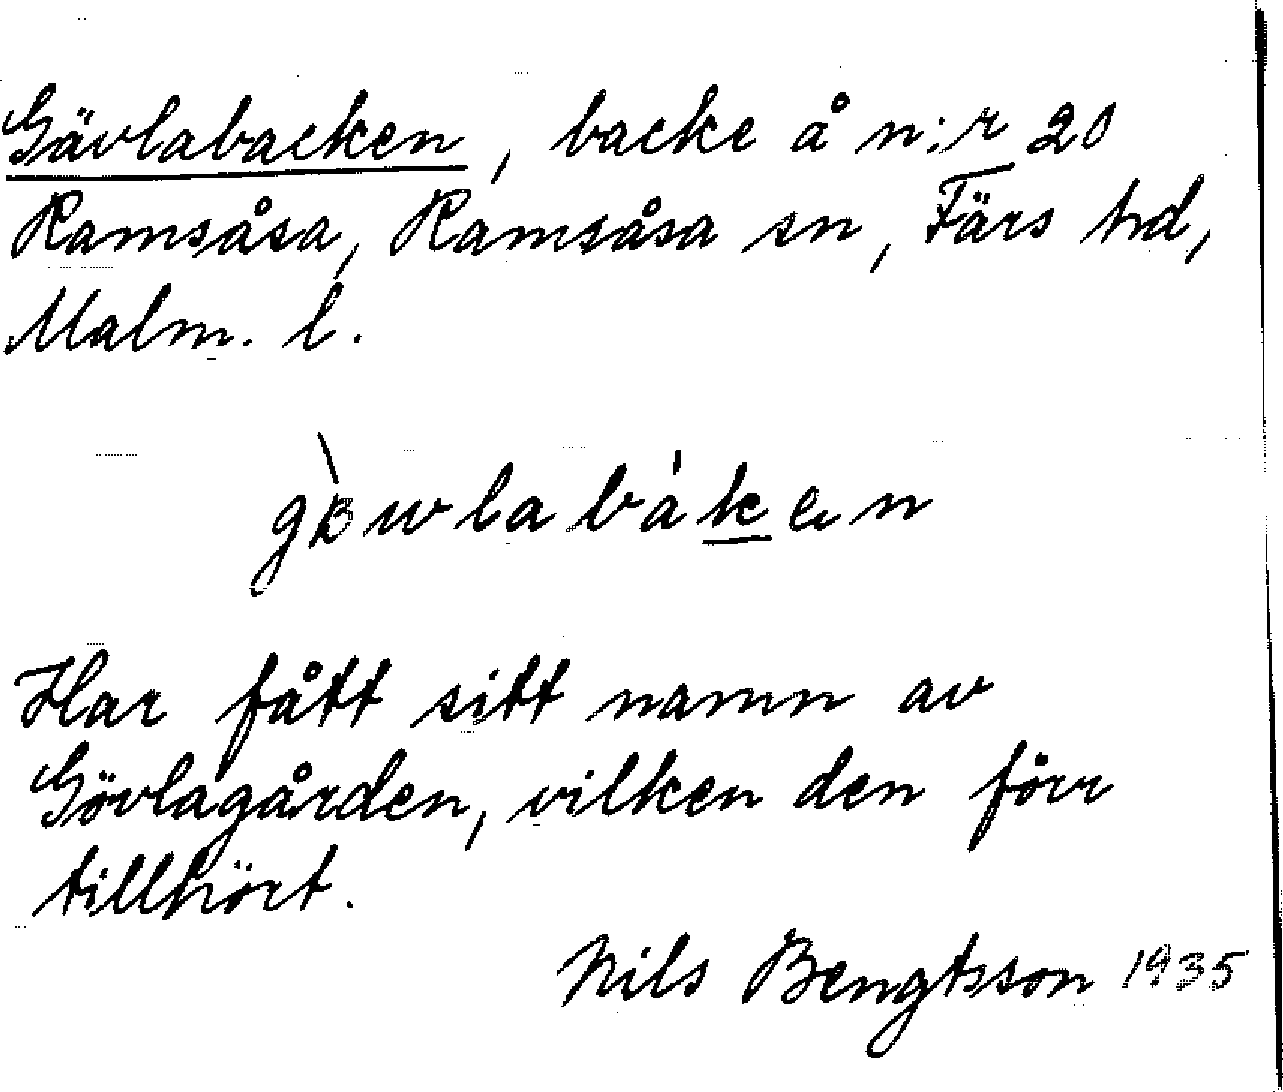 Gävlabacken, backe å n:r 20
Ramsåsa, Ramsåsa sn, Färs hd,
Malm. l.
Har fått sitt namn av
Gövlagården, vilken den förr
tillhört.
Nils Bengtsson 1935